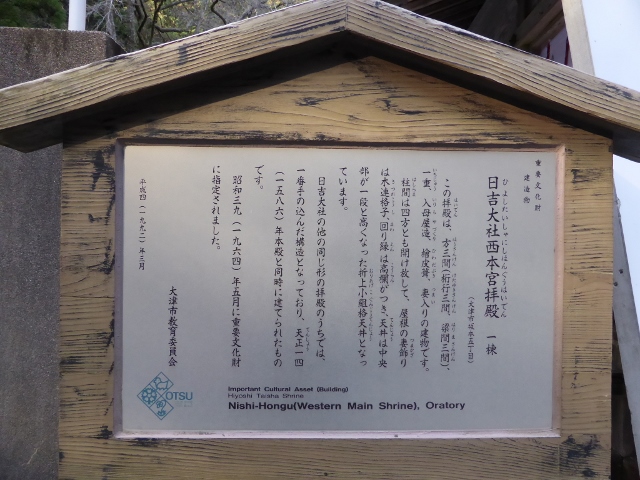 重要文化財
建造物
ひよしたいしゃにしほんぐうはいでん
日吉大社西本宮拝殿 一棟
(大津市坂本五丁目)
この拝殿は、方三間(桁行三間、梁間三間)、
一重、入母屋造、檜皮葺、妻入りの建物です。
柱間は四方とも開け放して、屋根の妻飾り
は木連格子、回り縁は高欄がつき、天井は中央
部が一段と高くなった折上小組格天井となっ
ています。
日吉大社の他の同じ形の拝殿のうちでは、
一番手の込んだ構造となっており、天正一四
(一五八六)年本殿と同時に建てられたもの
です。
昭和三九(一九六四)年五月に重要文化財
に指定されました。
平成四(一九九二)年三月
大津市教育委員会
OTSU
Important Cultural Asset (Building)
Hiyoshi Taisha Shrine
Nishi-Hongu(Western Main Shrine), Oratory